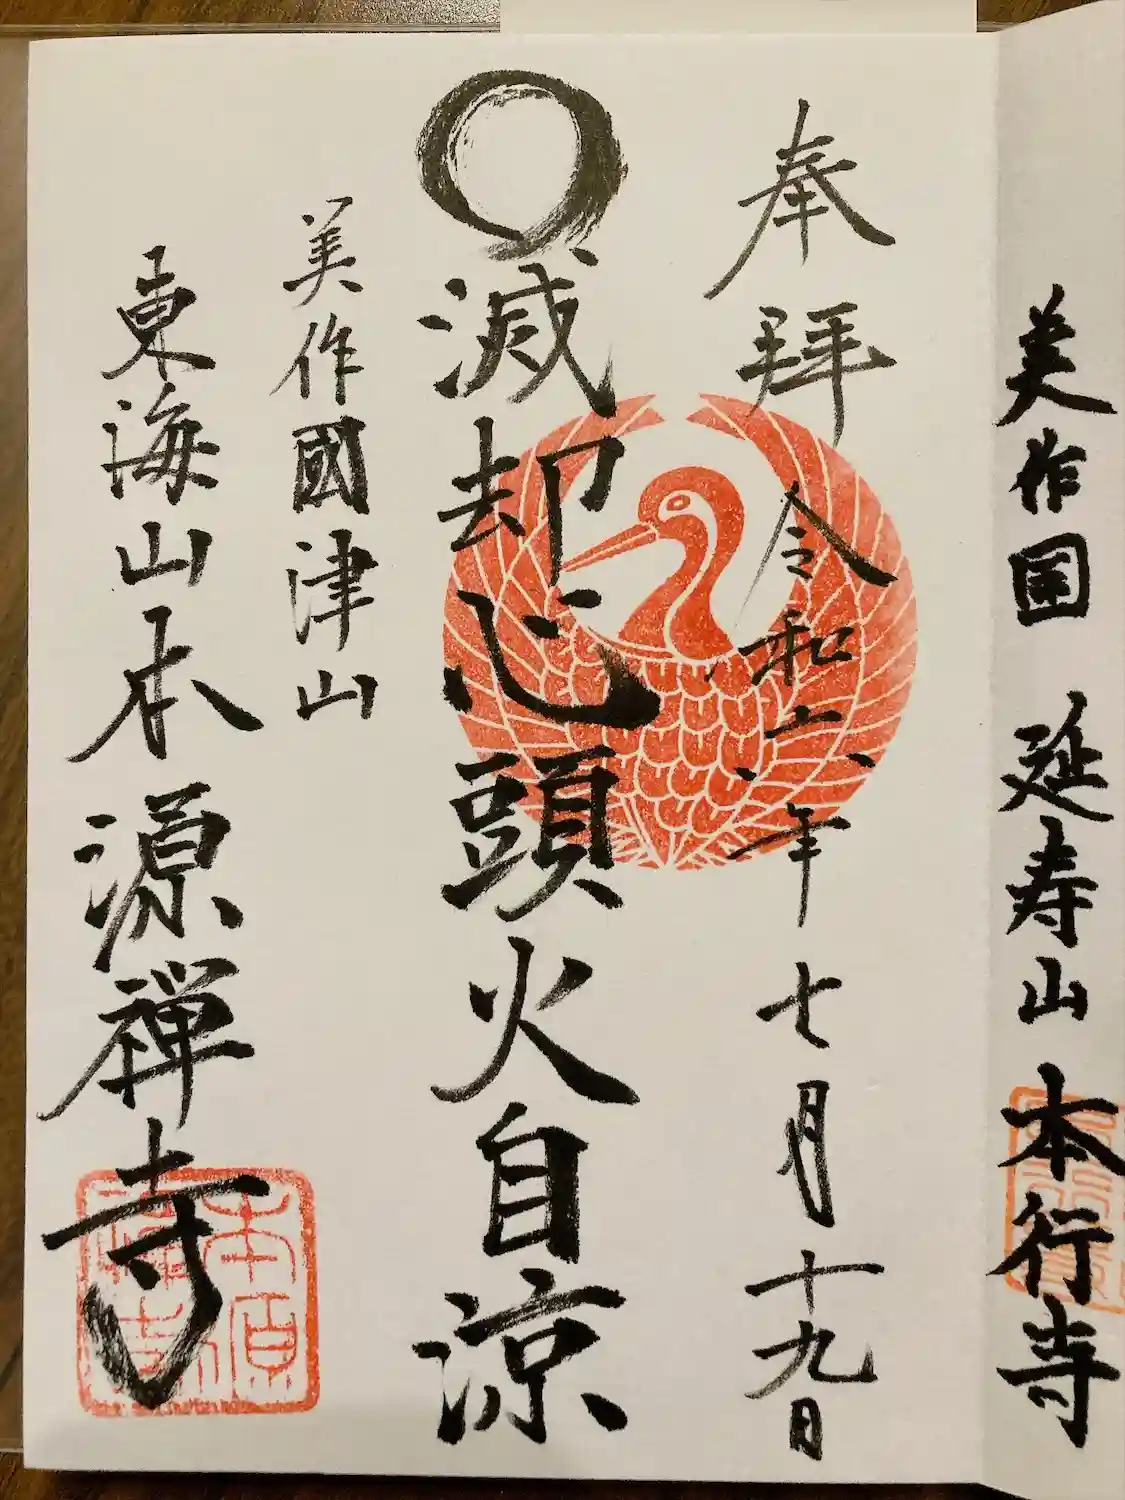 美作国 延寿山 本行寺
奉拝 令和六年七月十九日
滅却心頭火自涼
美作國津山
東海山本源禅寺
本源
禅寺